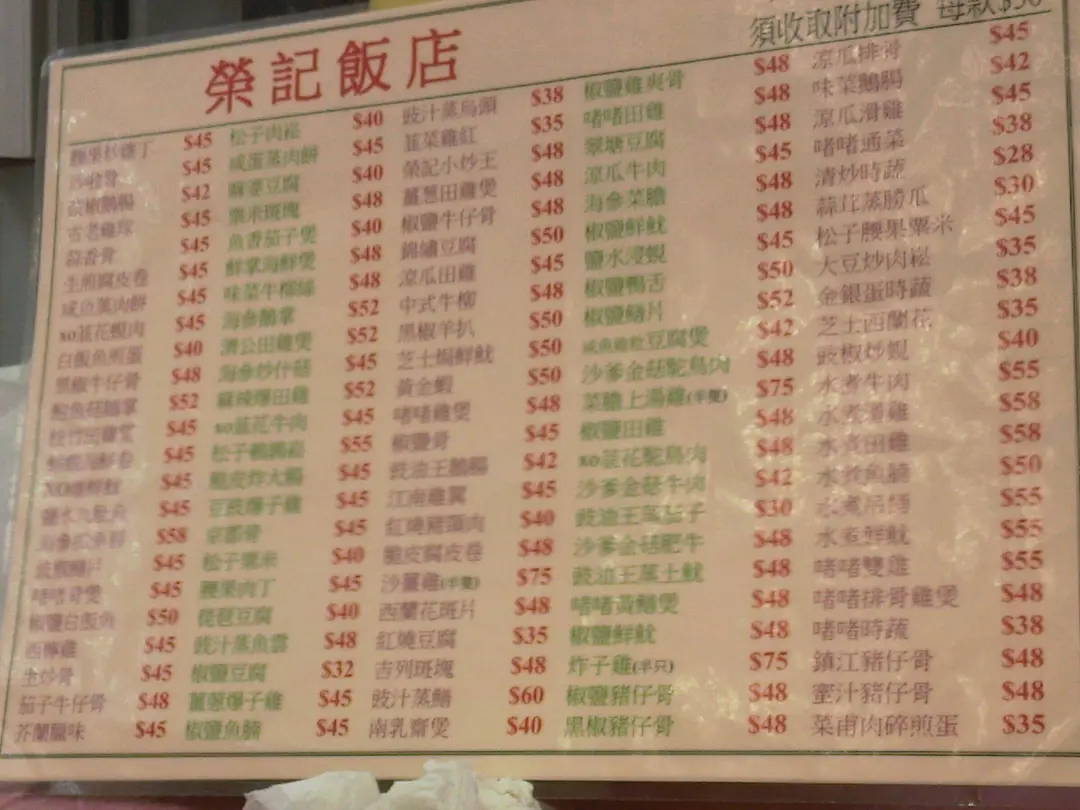 須收取附加費 每款$30
榮記飯店
腰果炒雞丁 $45
沙嗲骨 $45
豉椒鵝腸 $42
古老雞球 $45
蒜香骨 $45
生煎腐皮卷 $45
咸魚蒸肉餅 $45
xo韮花蜆肉 $45
白飯魚煎蛋 $40
黑椒牛仔骨 $48
鮑魚菇鵝掌 $52
松竹田雞 $45
$45
XO爆鮮魷 $45
鹽水 $45
海參 $58
鱔片 $45
啫啫骨煲 $45
椒鹽白飯魚 $50
西檸雞 $45
生炒骨 $45
茄子牛仔骨 $48
芥蘭臘味 $45
松子肉崧 $40
咸蛋蒸肉餅 $45
麻婆豆腐 $40
粟米斑塊 $48
魚香茄子煲 $40
鮮掌海鮮煲 $48
味菜牛柳絲 $48
海參鵝掌 $52
濟公田雞煲 $52
海參炒什菇 $45
麻辣爆田雞 $52
xo韮花牛肉 $45
松子鵪鶉崧 $55
脆皮炸大腸 $45
豆豉爆子雞 $45
京都骨 $45
松子粟米 $40
腰果肉丁 $45
琵琶豆腐 $40
豉汁蒸魚雲 $48
椒鹽豆腐 $32
薑蔥爆子雞 $45
椒鹽魚腩 $45
豉汁蒸烏頭 $38
韮菜雞紅 $35
榮記小炒王 $48
薑蔥田雞煲 $48
椒鹽牛仔骨 $48
錦繡豆腐 $50
涼瓜田雞 $45
中式牛柳 $48
黑椒羊扒 $50
芝士焗鮮魷 $50
黃金蝦 $50
啫啫雞煲 $48
椒鹽骨 $45
豉油王鵝腸 $42
江南雞翼 $45
紅燒豬頸肉 $40
脆皮腐皮卷 $48
沙薑雞(半隻) $75
西蘭花斑片 $48
紅燒豆腐 $35
吉列斑塊 $48
豉汁蒸鱔 $60
南乳齋煲 $40
椒鹽雞爽骨 $48
啫啫田雞 $48
翠塘豆腐 $48
涼瓜牛肉 $45
海參菜膽 $48
椒鹽鮮魷 $48
鹽水浸蜆 $45
椒鹽鴨舌 $50
椒鹽鱔片 $52
咸魚雞粒豆腐煲 $42
沙爹金菇鴕鳥肉 $48
菜膽上湯雞(半隻) $75
椒鹽田雞 $48
xo韮花鴕鳥肉 $48
沙爹金菇牛肉 $42
豉油王蒸茄子 $30
沙爹金菇肥牛 $48
豉油王蒸土魷 $48
啫啫黃鱔煲 $48
椒鹽鮮魷 $48
炸子雞(半只) $75
椒鹽豬仔骨 $48
黑椒豬仔骨 $48
涼瓜排骨 $45
味菜鵝腸 $42
涼瓜滑雞 $45
啫啫通菜 $38
清炒時蔬 $28
蒜茸蒸勝瓜 $30
松子腰果粟米 $45
大豆炒肉崧 $35
金銀蛋時蔬 $38
芝士西蘭花 $35
豉椒炒蜆 $40
水煮牛肉 $55
水煮滑雞 $58
水煮田雞 $58
水煮魚腩 $50
水煮吊桶 $55
水煮鮮魷 $55
啫啫雙雞 $55
啫啫排骨雞煲 $48
啫啫時蔬 $38
鎮江豬仔骨 $48
蜜汁豬仔骨 $48
菜甫肉碎煎蛋 $35